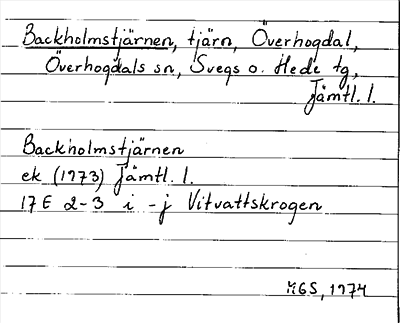 Backholmstjärnen, tjärn, Överhogdal,
Överhogdals sn, Svegs o. Hede tg,
Jämtl. l.
Backholmstjärnen
ek (1973) Jämtl. l.
17E 2-3 i -j Vitvattskrogen
MGS, 1974